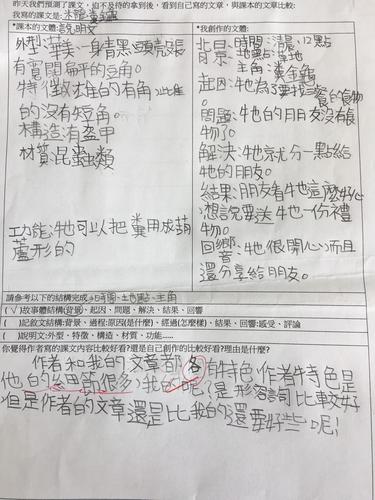 昨天我們預測了課文，迫不及待的拿到後，看到自己寫的文章，與課本的文章比較：
我寫的課文是：米龍糞金龜
*課本的文體：說明文
外型：華美一身青黑，頭殼張
有寬闊扁平的短角。
特徵：雄的有角，雌
的沒有短角。
構造：有盔甲
材質：昆蟲類
功能：牠可以把糞用成葫
蘆形的
*我創作的文體：
背景：時間：清晨12點
主角：黃金龜
起因：牠為了要找的食物
問題：牠的朋友沒有食
物了。
解決：牠就分一點給
牠的朋友。
結果：朋友看牠這麼好心
想說要送牠一份禮
物。
回響：牠很開心，而且
還分享給朋友。
請參考以下的結構完成 時間、地點、主角
(√)故事體結構：背景、起因、問題、解決、結果、回響
( )記敘文結構：背景、過程：原因(是什麼)、經過(怎麼樣)、結果、回響：感受、評論
( )說明文：外型、特徵、構造、材質、功能……
你覺得作者寫的課文內容比較好看?還是自己創作的比較好看?理由是什麼?
作者和我的文章都各有特色，作者特色是
他的細節很多，我的呢！是形容詞比較好
但是作者的文章還是比我的還要好些呢！